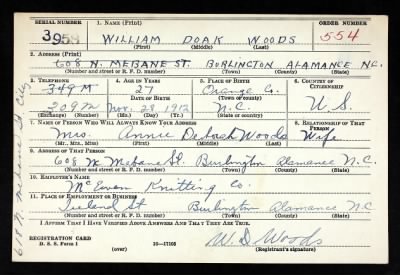 SERIAL NUMBER 1. NAME (Print) ORDER NUMBER
3958 WILLIAM DOAK WOODS 554
(First) (Middle) (Last)
2. ADDRESS (Print)
608 N. MEBANE ST. BURLINGTON ALAMANCE N.C.
(Number and street or R. F. D. number) (Town) (County) (State)
3. TELEPHONE 4. AGE IN YEARS 5. PLACE OF BIRTH 6. COUNTRY OF CITIZENSHIP
349M 27 Orange Co.
DATE OF BIRTH (Town or county)
209M Nov. 28 1912 N.C. U.S.
(Exchange) (Number) (Mo.) (Day) (Yr.) (State or country)
7. NAME OF PERSON WHO WILL ALWAYS KNOW YOUR ADDRESS 8. RELATIONSHIP OF THAT PERSON
Mrs. Annie Woods Wife
(Mr., Mrs., Miss) (First) (Middle) (Last)
9. ADDRESS OF THAT PERSON
608 N. Mebane St. Burlington Alamance N.C.
(Number and street or R. F. D. number) (Town) (County) (State)
10. EMPLOYER'S NAME
McEwen Knitting Co.
11. PLACE OF EMPLOYMENT OR BUSINESS
Ireland St Burlington Alamance N.C.
(Number and street or R. F. D. number) (Town) (County) (State)
I AFFIRM THAT I HAVE VERIFIED ABOVE ANSWERS AND THAT THEY ARE TRUE.
REGISTRATION CARD
D. S. S. Form 1 (over) 16-17105 W.D. Woods
(Registrant's signature)
618 N. Mebane St City